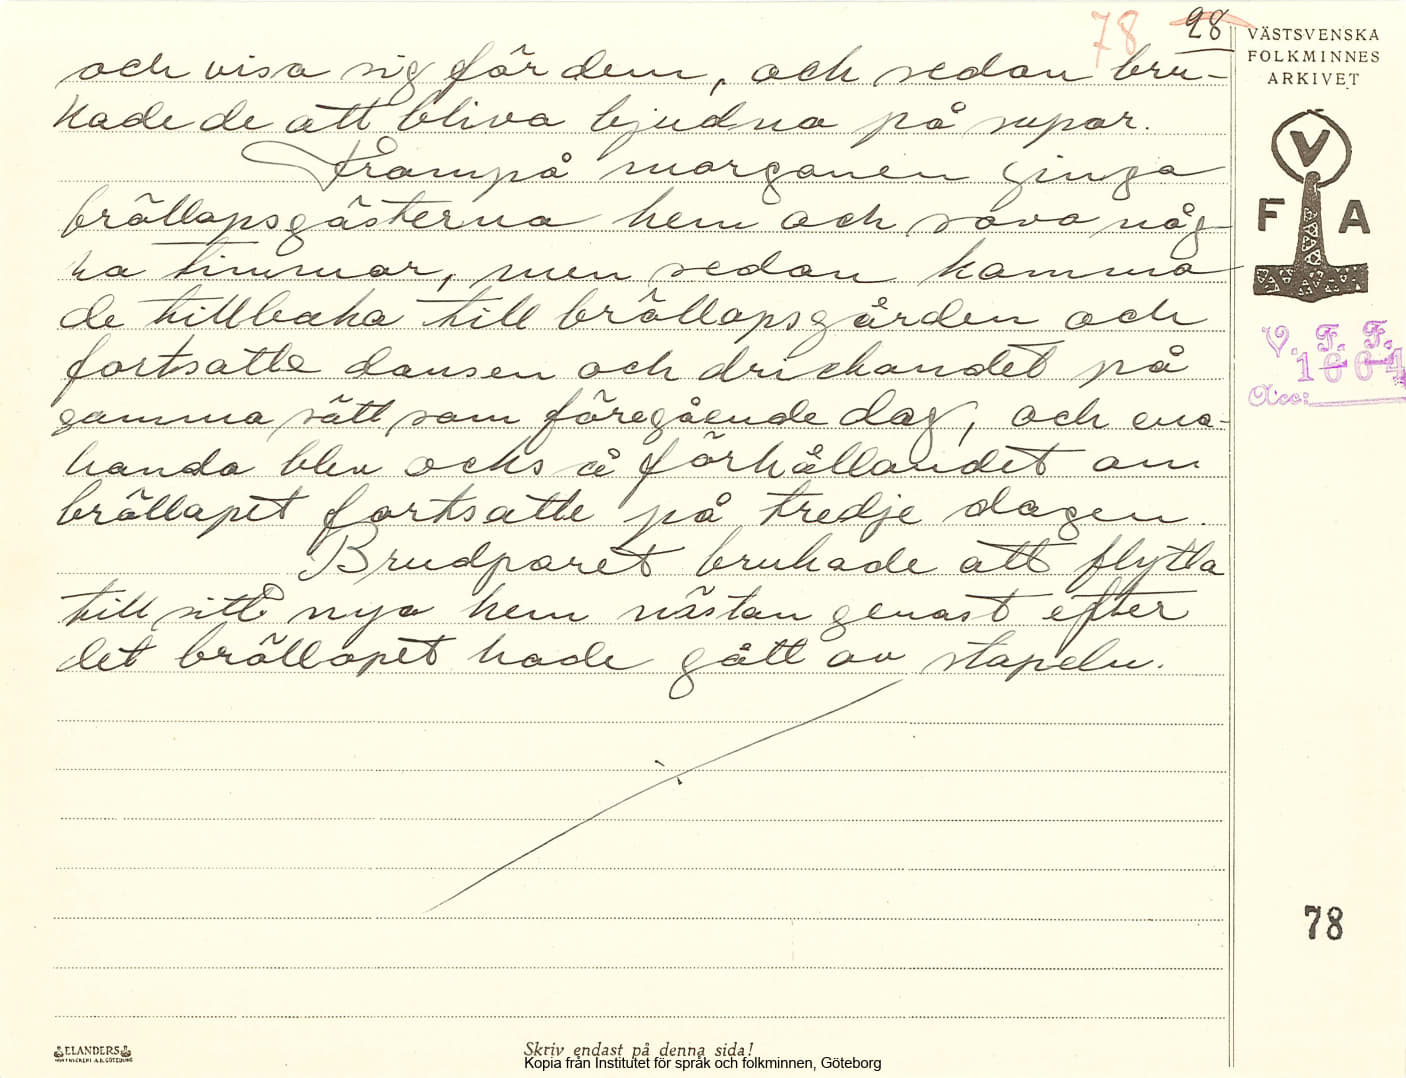 78 28
VÄSTSVENSKA
FOLKMINNES
ARKIVET
och visa sig för dem, och sedan bru-
kade de att bliva bjudna på supar.
Frampå morgonen ginga
bröllopsgästerna hem och sova någ-
ra timmar, men sedan komma
de tillbaka till bröllopsgården och
fortsatte dansen och drickandet på
samma sätt som föregående dag, och ena-
handa blev också förhållandet om
bröllopet fortsatte på tredje dagen.
Brudparet brukade att flytta
till sitt nya hem nästan genast efter
det bröllopet hade gått av stapeln.
V
F A
V. F. F.
1664
Acc:
78
ELANDERS
Skriv endast på denna sida!
Kopia från Institutet för språk och folkminnen, Göteborg